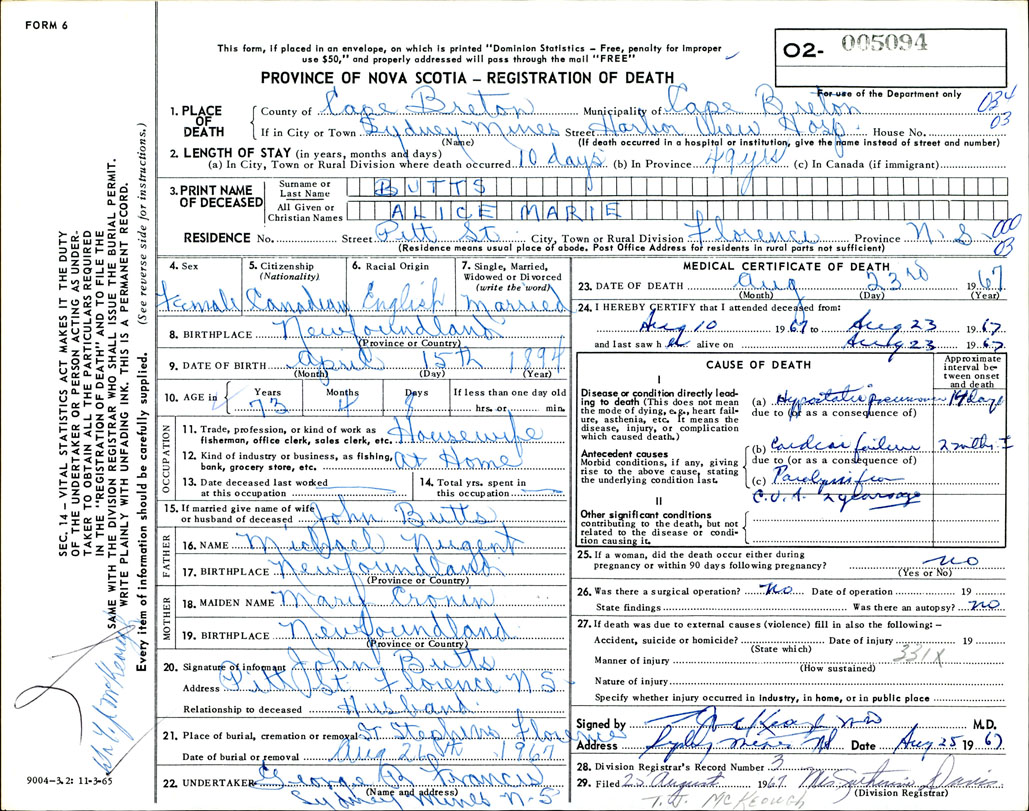 FORM 6
This form, if placed in an envelope, on which is printed "Dominion Statistics – Free, penalty for improper
use $50," and properly addressed will pass through the mail "FREE"
O2- 005094
PROVINCE OF NOVA SCOTIA – REGISTRATION OF DEATH
For use of the Department only
034
03
1. PLACE OF DEATH
County of Cape Breton Municipality of Cape Breton
If in City or Town Sydney Mines Street Harbor View Hosp. House No.
(Name) (If death occurred in a hospital or institution, give the name instead of street and number)
2. LENGTH OF STAY (in years, months and days)
(a) In City, Town or Rural Division where death occurred 10 days (b) In Province 49 yrs (c) In Canada (if immigrant)
3. PRINT NAME OF DECEASED
Surname or Last Name BUTTS
All Given or Christian Names ALICE MARIE
RESIDENCE No. Street Pitt St. City, Town or Rural Division Florence Province N.S.
000
03
(Residence means usual place of abode. Post Office Address for residents in rural parts not sufficient)
4. Sex Female
5. Citizenship (Nationality) Canadian
6. Racial Origin English
7. Single, Married, Widowed or Divorced (write the word) Married
8. BIRTHPLACE Newfoundland
(Province or Country)
9. DATE OF BIRTH April 15th 1894
(Month) (Day) (Year)
10. AGE in Years 73 Months 4 Days 8 If less than one day old hrs. or min.
OCCUPATION
11. Trade, profession, or kind of work as fisherman, office clerk, sales clerk, etc. Housewife
12. Kind of industry or business, as fishing, bank, grocery store, etc. At Home
13. Date deceased last worked at this occupation
14. Total yrs. spent in this occupation
15. If married give name of wife or husband of deceased John Butts
FATHER
16. NAME Michael Nugent
17. BIRTHPLACE Newfoundland
(Province or Country)
MOTHER
18. MAIDEN NAME Mary Cronin
19. BIRTHPLACE Newfoundland
(Province or Country)
20. Signature of informant John Butts
Address Pitt St. Florence N.S.
Relationship to deceased Husband
21. Place of burial, cremation or removal St Stephens Florence
Date of burial or removal Aug 26th 1967
22. UNDERTAKER George B Francis
(Name and address)
Sydney Mines N-S
MEDICAL CERTIFICATE OF DEATH
23. DATE OF DEATH Aug 23rd 1967
(Month) (Day) (Year)
24. I HEREBY CERTIFY that I attended deceased from:
Aug 10 1967 to Aug 23 1967
and last saw her alive on Aug 23 1967
CAUSE OF DEATH
Approximate interval between onset and death
I
Disease or condition directly leading to death (This does not mean the mode of dying, e.g., heart failure, asthenia, etc. It means the disease, injury, or complication which caused death.)
(a) Hypostatic pneumonia 14 days
due to (or as a consequence of)
Antecedent causes
Morbid conditions, if any, giving rise to the above cause, stating the underlying condition last.
(b) Cardiac failure 2 mths.
due to (or as a consequence of)
(c) Paralysis from
C.V.A. 2 years ago
II
Other significant conditions
contributing to the death, but not related to the disease or condition causing it.
25. If a woman, did the death occur either during pregnancy or within 90 days following pregnancy? no
(Yes or No)
26. Was there a surgical operation? No Date of operation 19
State findings Was there an autopsy? no
27. If death was due to external causes (violence) fill in also the following:–
Accident, suicide or homicide? Date of injury 19
(State which)
331X
Manner of injury
(How sustained)
Nature of injury
Specify whether injury occurred in industry, in home, or in public place
Signed by McKeough M.D.
Address Sydney Mines NS Date Aug 25 1967
28. Division Registrar's Record Number 3
29. Filed 25 August 1967 Mrs Davis
(Division Registrar)
T. W. McKEOUGH
SEC. 14 – VITAL STATISTICS ACT MAKES IT THE DUTY
OF THE UNDERTAKER OR PERSON ACTING AS UNDER-
TAKER TO OBTAIN ALL THE PARTICULARS REQUIRED
IN THE "REGISTRATION OF DEATH" AND TO FILE THE
SAME WITH THE DIVISION REGISTRAR WHO SHALL ISSUE THE BURIAL PERMIT.
WRITE PLAINLY WITH UNFADING INK. THIS IS A PERMANENT RECORD.
Every item of information should be carefully supplied. (See reverse side for instructions.)
McKeough
9004-3.2: 11-3-65